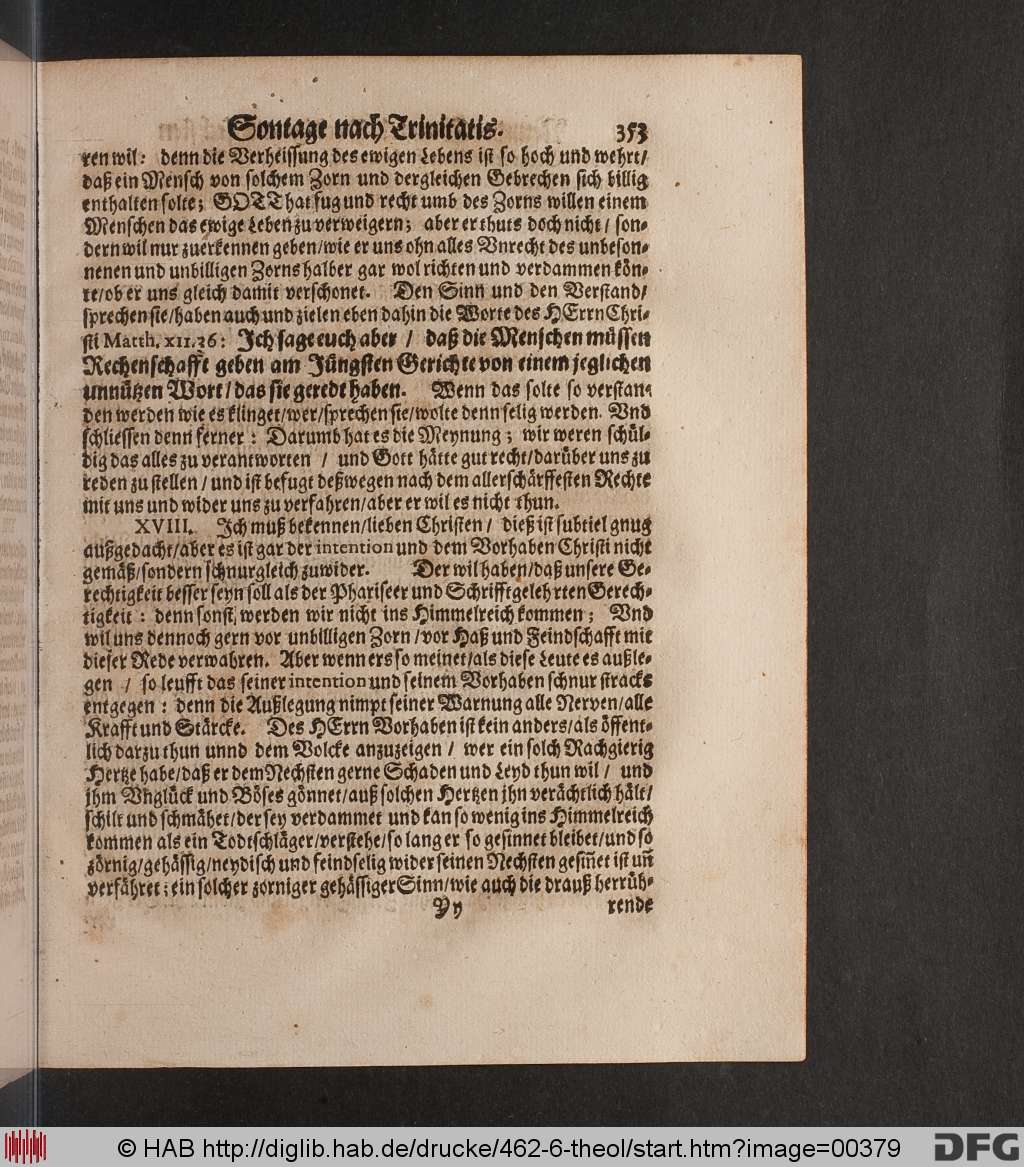 Sontage nach Trinitatis. 353
ren wil: denn die Verheissung des ewigen Lebens ist so hoch und wehrt/
daß ein Mensch von solchem Zorn und dergleichen Gebrechen sich billig
enthalten solte; GOTT hat fug und recht umb des Zorns willen einem
Menschen das ewige Leben zu verweigern; aber er thuts doch nicht/ son-
dern wil nur zuerkennen geben/wie er uns ohn alles Vnrecht des unbeson-
nenen und unbilligen Zorns halber gar wol richten und verdammen kön-
te/ob er uns gleich damit verschonet. Den Sinn und den Verstand/
sprechen sie/haben auch und zielen eben dahin die Worte des HErrn Chri-
sti Matth. XII. 36: Ich sage euch aber / daß die Menschen müssen
Rechenschafft geben am Jüngsten Gerichte von einem jeglichen
unnützen Wort/das sie geredt haben. Wenn das solte so verstan-
den werden wie es klinget/wer/sprechen sie/wolte denn selig werden. Vnd
schliessen denn ferner: Darumb hat es die Meynung; wir weren schül-
dig das alles zu verantworten / und Gott hätte gut recht/darüber uns zu
reden zu stellen/und ist befugt deßwegen nach dem allerschärffesten Rechte
mit uns und wider uns zu verfahren/aber er wil es nicht thun.
XVIII. Ich muß bekennen/lieben Christen/ dieß ist subtiel gnug
außgedacht/aber es ist gar der intention und dem Vorhaben Christi nicht
gemäß/sondern schnurgleich zuwider. Der wil haben/daß unsere Ge-
rechtigkeit besser seyn soll als der Phariseer und Schrifftgelehrten Gerech-
tigkeit: denn sonst werden wir nicht ins Himmelreich kommen; Vnd
wil uns dennoch gern vor unbilligen Zorn/vor Haß und Feindschafft mit
dieser Rede verwahren. Aber wenn ers so meinet/als diese Leute es außle-
gen / so leufft das seiner intention und seinem Vorhaben schnur stracks
entgegen: denn die Außlegung nimpt seiner Warnung alle Nerven/alle
Krafft und Stärcke. Des HErrn Vorhaben ist kein anders/als öffent-
lich darzu thun unnd dem Volcke anzuzeigen/ wer ein solch Rachgierig
Hertze habe/daß er dem Nechsten gerne Schaden und Leyd thun wil/ und
jhm Vnglück und Böses gönnet/auß solchen Hertzen jhn verächtlich hält/
schilt und schmähet/der sey verdammet und kan so wenig ins Himmelreich
kommen als ein Todtschläger/verstehe/so lang er so gesinnet bleibet/und so
zörnig/gehässig/neydisch und feindselig wider seinen Nechsten gesiñet ist uñ
verfähret; ein solcher zorniger gehässiger Sinn/wie auch die drauß herrüh-
Yy rende
© HAB http://diglib.hab.de/drucke/462-6-theol/start.htm?image=00379 DFG